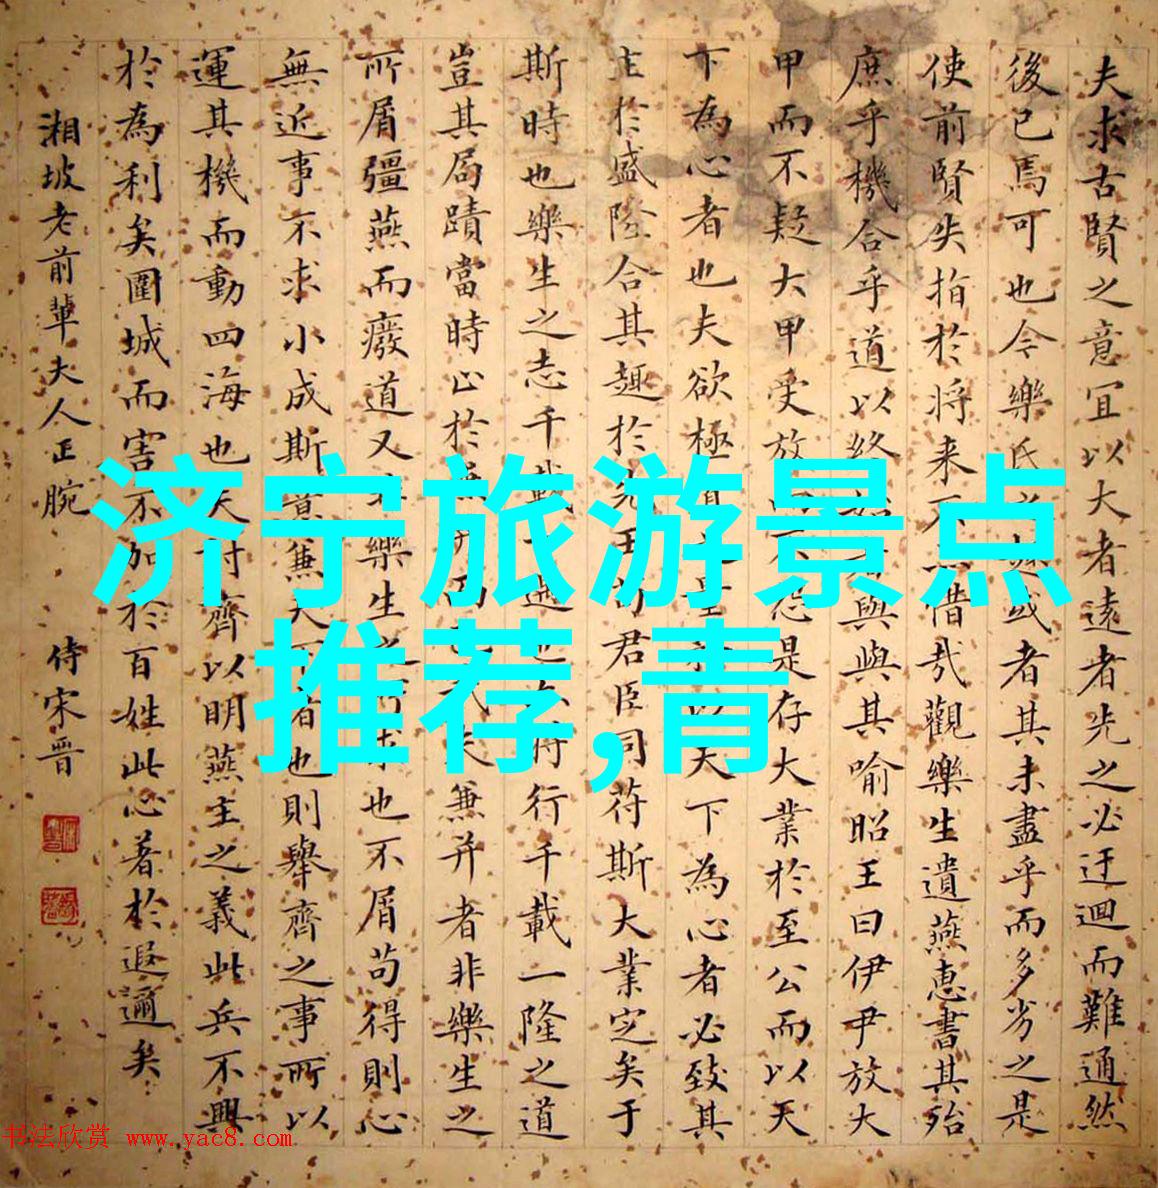 夫求古賢之意宜以大者遠者先之必迂迴而難通然
後已焉可也今樂氏之趣或者其未盡乎而多劣之是
使前賢失指於将来不亦惜哉觀樂生遺燕惠書其殆
庶乎機合乎道以終始者與與其喻昭王曰伊尹放大
甲而不疑大甲受放而不怨是存大業於至公而以天
下為心者也夫欲極道之量務以天下為心者必致其
主於盛隆合其趣於先王苟君臣同苻斯大業定矣于
斯時也樂生之志千載一遇也亦将行千載一隆之道
豈其局蹟當時止於兼并而已哉夫兼并者非樂生之
所屑彊燕而廢道又非樂生之所求也不屑苟得則心
無近事不求小成斯意兼天下者也則舉齊之事所以
運其機而動四海也夫討齊以明燕主之義此兵不興
於為利矣圍城而害不加於百姓此心著於遐邇矣
湘坡老前輩夫人正腕 侍宋晋
济宁旅游景点
推荐,青
书法欣赏 www.yac8.com